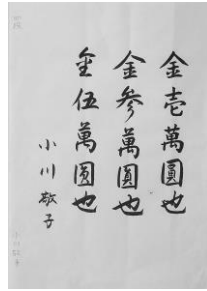 金壱萬圓也
金参萬圓也
金伍萬圓也
小川敬子